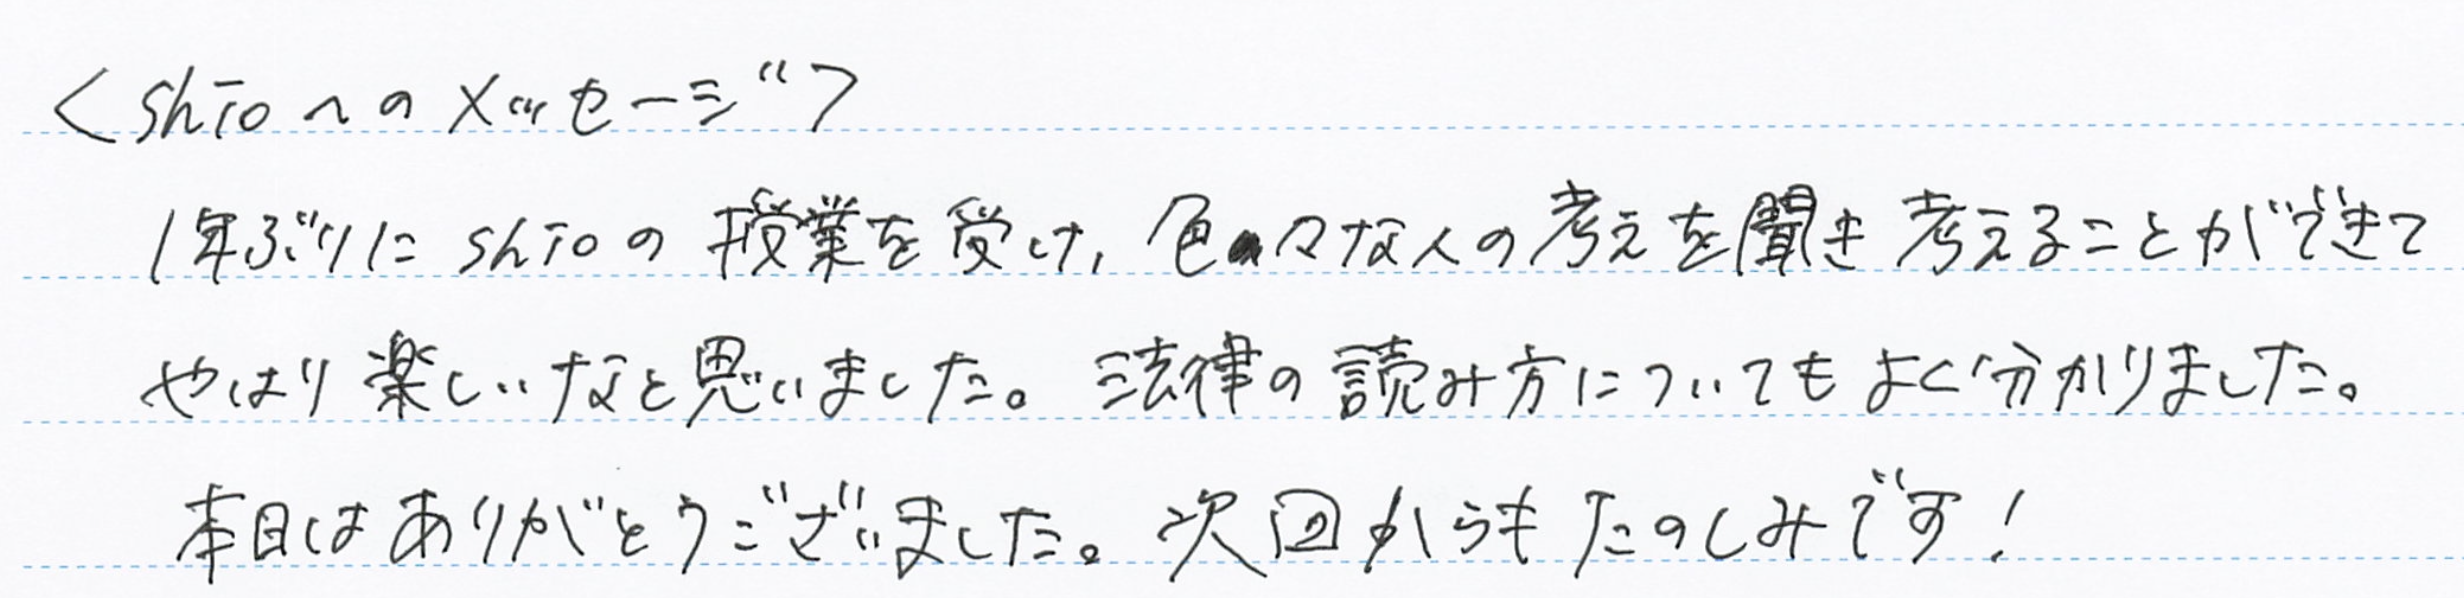 <shioへのメッセージ>
1年ぶりにshioの授業を受け、色々な人の考えを聞き考えることができて
やはり楽しいなと思いました。法律の読み方についてもよく分かりました。
本日はありがとうございました。次回からもたのしみです!